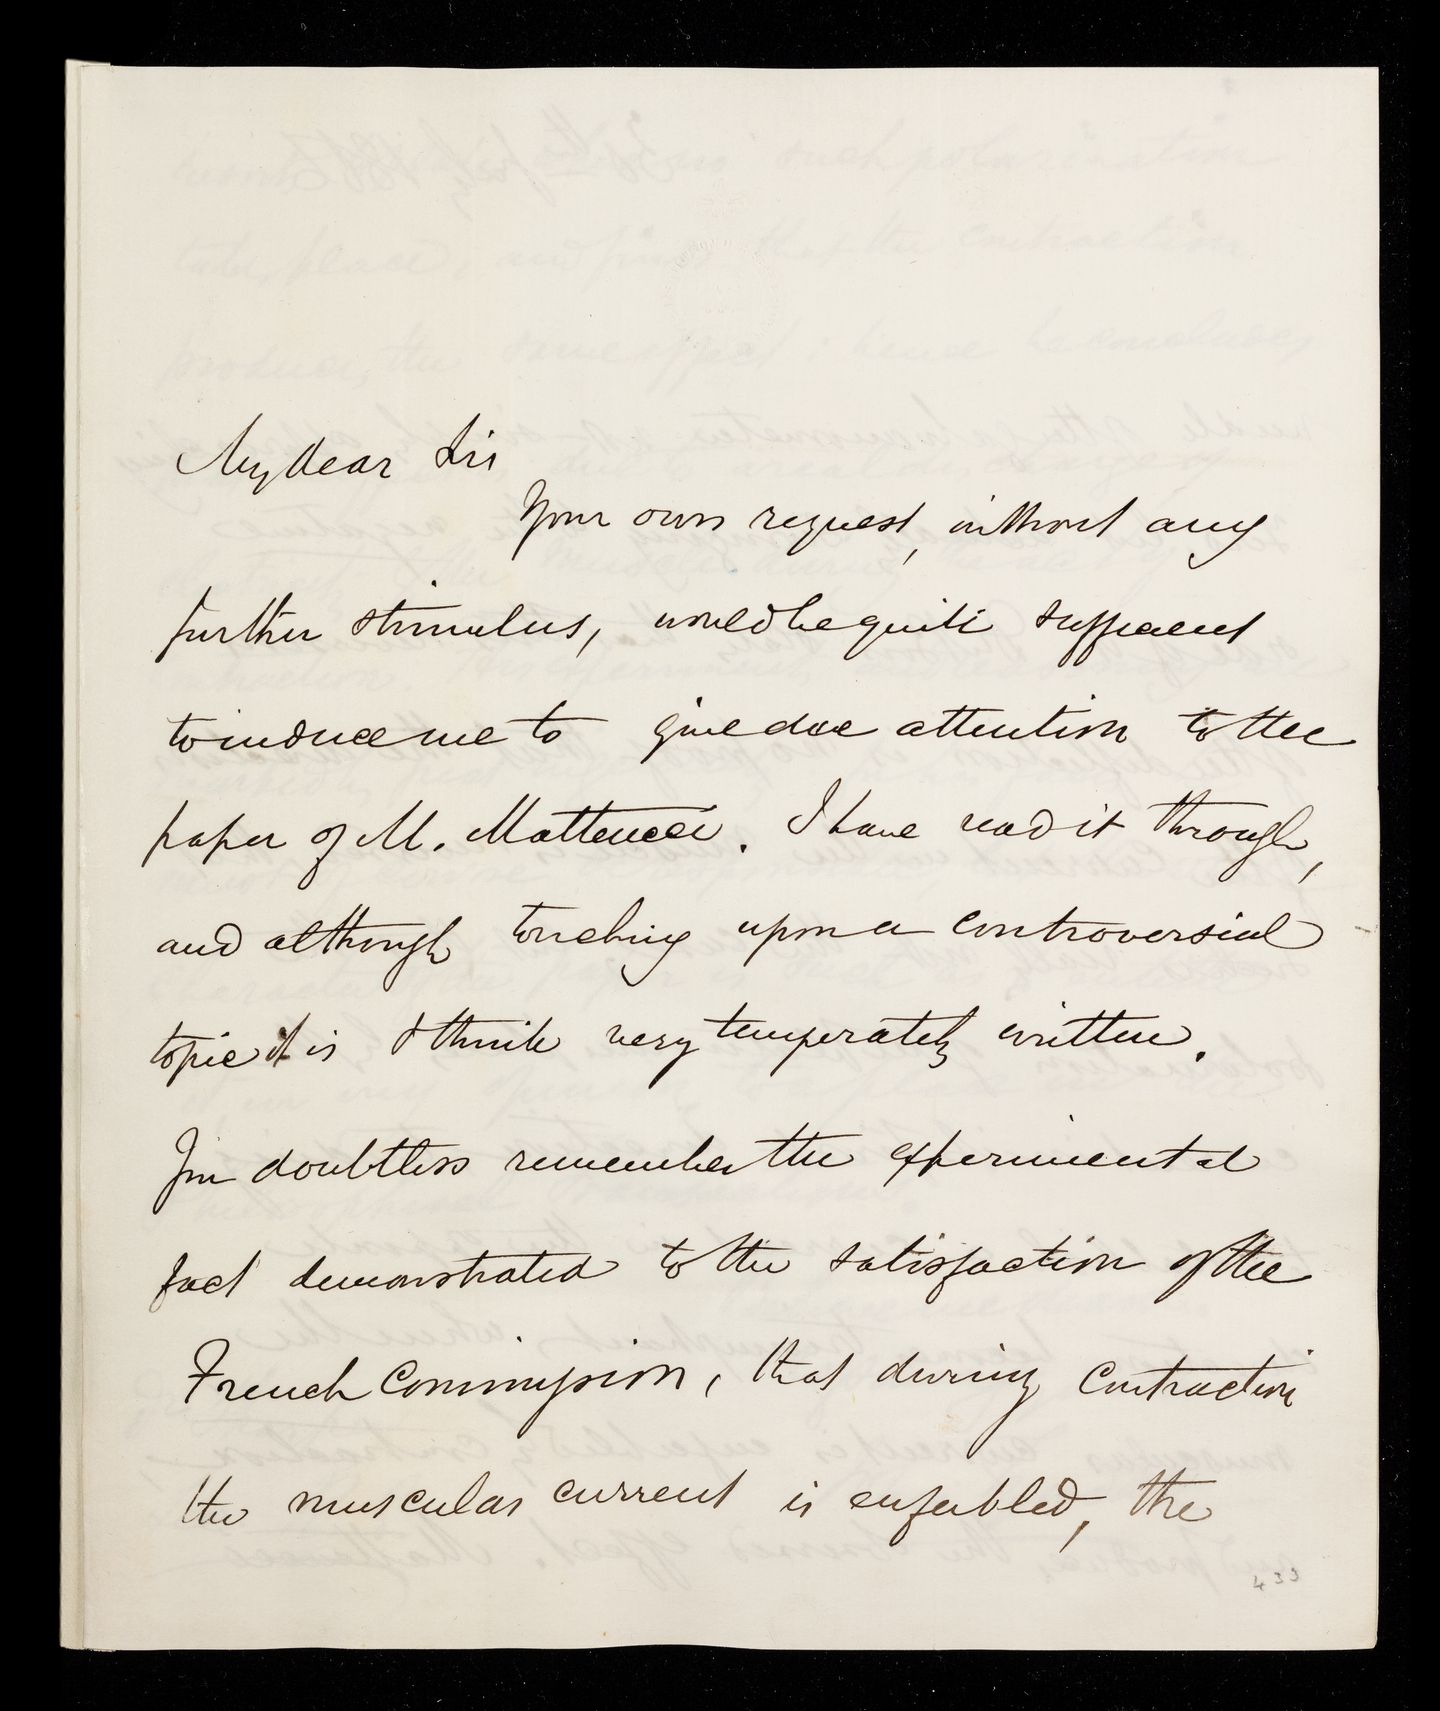 My dear Sir
Your own request, without any
further stimulus, would be quite sufficient
to induce me to give due attention to the
paper of M. Matteucci. I have read it through,
and although touching upon a controversial
topic it is I think very temperately written.
You doubtless remember the experimental
fact demonstrated to the satisfaction of the
French Commission, that during contraction
the muscular current is enfeebled, the
433